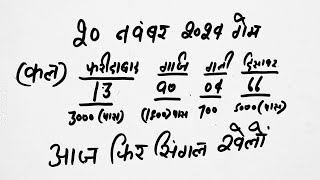 २० नवंबर २०२४ गेम
(कल) फरीदाबाद गाजि गली दिसावर
13 90 04 66
3000 (पास) (1800) पास 700 5000 (पास)
आज फिर सिंगल खेलों